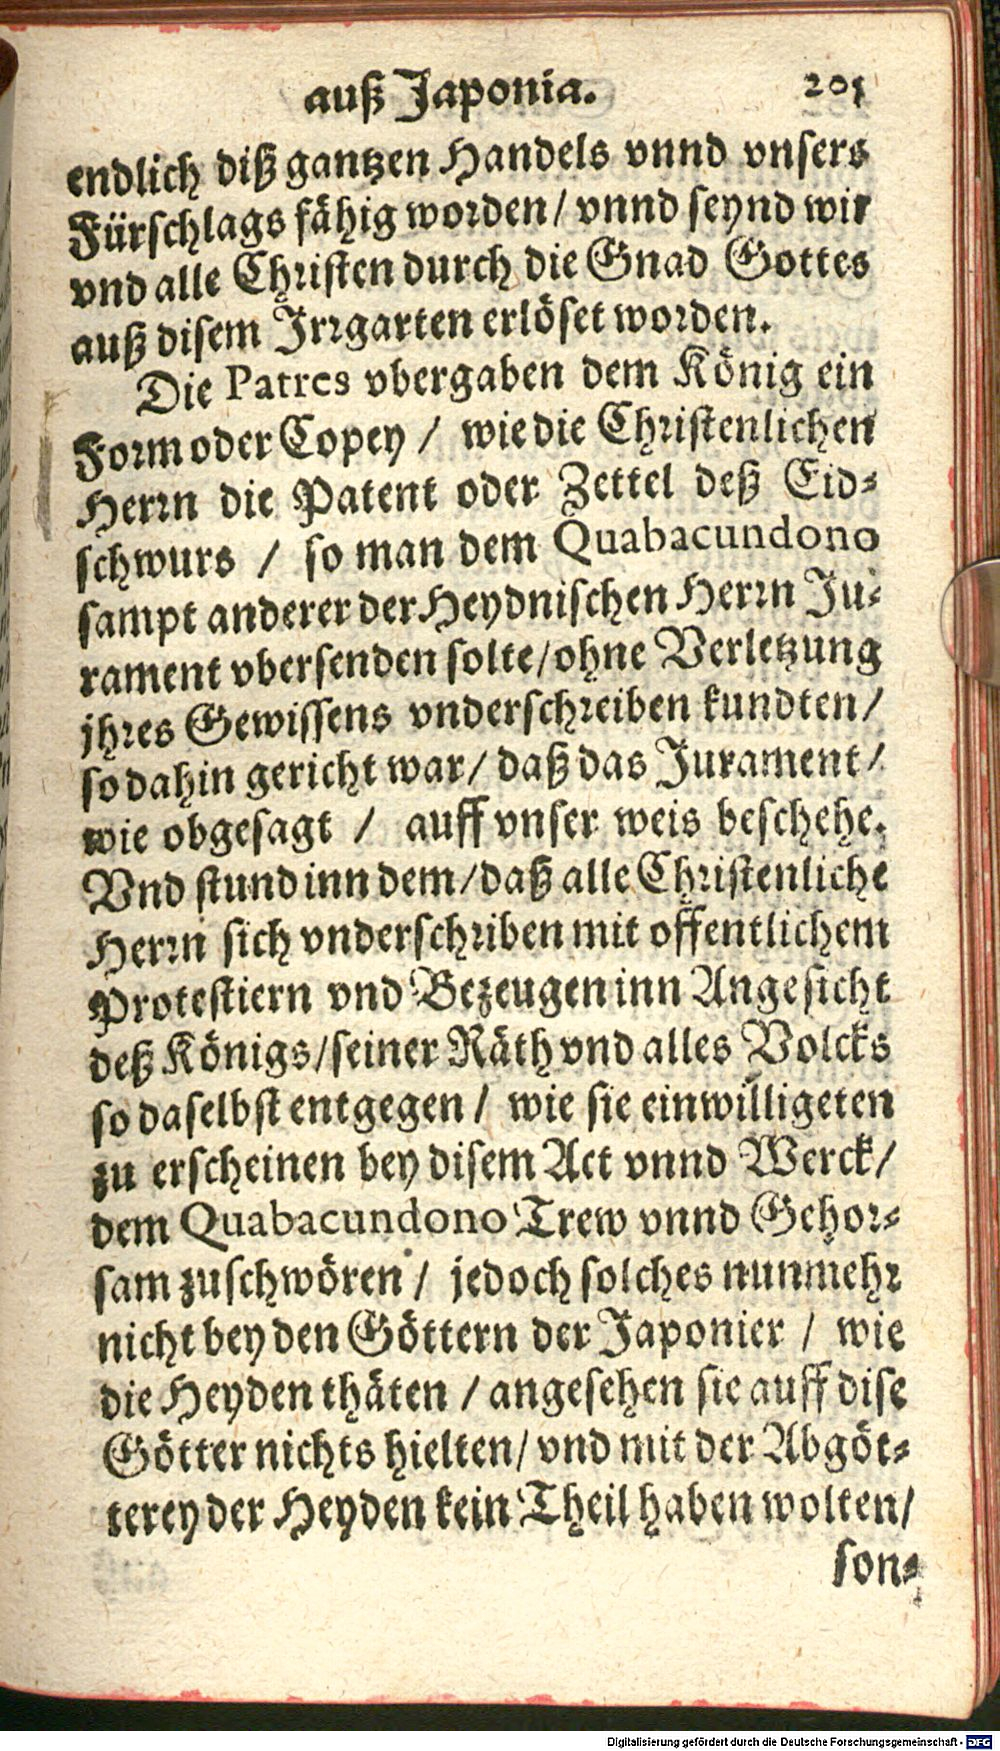 auß Japonia. 201
endlich diß gantzen Handels vnnd vnsers
Fürschlags fähig worden/ vnnd seynd wir
vnd alle Christen durch die Gnad Gottes
auß disem Irrgarten erlöset worden.
Die Patres vbergaben dem König ein
Form oder Copey / wie die Christenlichen
Herrn die Patent oder Zettel deß Eid-
schwurs / so man dem Quabacundono
sampt anderer der Heydnischen Herrn Ju-
rament vbersenden solte/ohne Verletzung
jhres Gewissens vnderschreiben kundten/
so dahin gericht war/ daß das Jurament/
wie obgesagt / auff vnser weis beschehe.
Vnd stund inn dem/daß alle Christenliche
Herrn sich vnderschriben mit offentlichem
Protestiern vnd Bezeugen inn Angesicht
deß Königs/seiner Räth vnd alles Volcks
so daselbst entgegen / wie sie einwilligeten
zu erscheinen bey disem Act vnnd Werck/
dem Quabacundono Trew vnnd Gehor-
sam zuschwören / jedoch solches nunmehr
nicht bey den Göttern der Japonier / wie
die Heyden thäten / angesehen sie auff dise
Götter nichts hielten/ vnd mit der Abgöt-
terey der Heyden kein Theil haben wolten/
son-
Digitalisierung gefördert durch die Deutsche Forschungsgemeinschaft - DFG